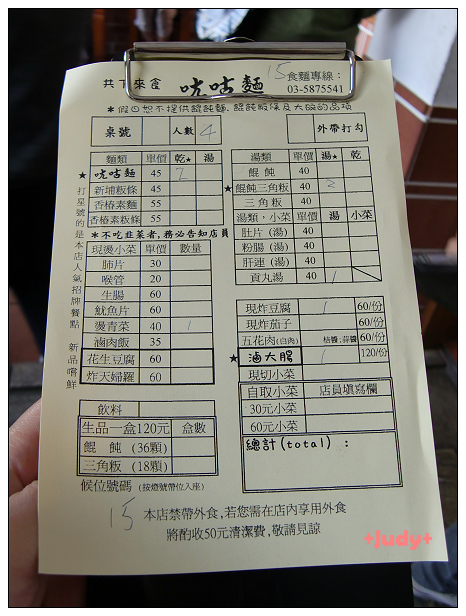 共下來食 吭咕麵 15 食麵專線：
03-5875541
＊假日恕不提供餛飩麵、餛飩粄條及大碗的品項
桌號 人數 4 外帶打勾
麵類 單價 乾★ 湯
★ 吭咕麵 45 2
新埔粄條 45
香椿素麵 55
香椿素粄條 55
＊不吃韭菜者，務必告知店員
現燙小菜 單價 數量
肺片 30
喉管 20
生腸 60
魷魚片 60
燙青菜 40 1
滷肉飯 35
花生豆腐 60
炸天婦羅 60
打星號的是本店人氣招牌餐點 新品嚐鮮
飲料
生品一盒120元 盒數
餛飩 (36顆)
三角粄 (18顆)
湯類 單價 湯★ 乾
餛飩 40
★ 餛飩三角粄 40 2
三角粄 40
湯類、小菜 單價 湯 小菜
肚片 (湯) 40
粉腸 (湯) 40
肝連 (湯) 40
貢丸湯 40 1
現炸豆腐 1 60/份
現炸茄子 60/份
五花肉(白肉) 桔醬；蒜醬 60/份
★ 滷大腸 1 120/份
現切小菜
自取小菜 店員填寫欄
30元小菜
60元小菜
總計(total)：
候位號碼 (按燈號帶位入座)
15 本店禁帶外食,若您需在店內享用外食
將酌收50元清潔費,敬請見諒
+Judy+